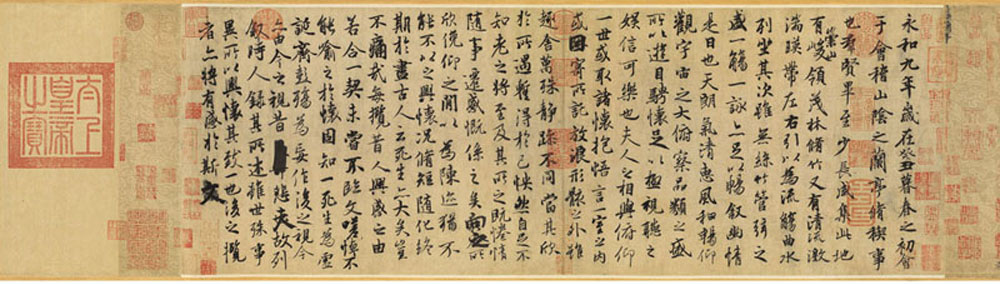 永和九年歲在癸丑暮春之初會
于會稽山陰之蘭亭脩稧事
也群賢畢至少長咸集此地
有崇山峻領茂林脩竹又有清流激
湍暎帶左右引以為流觴曲水
列坐其次雖無絲竹管弦之
盛一觴一詠亦足以暢敘幽情
是日也天朗氣清惠風和暢仰
觀宇宙之大俯察品類之盛
所以遊目騁懷足以極視聽之
娛信可樂也夫人之相與俯仰
一世或取諸懷抱悟言一室之內
或因寄所託放浪形骸之外雖
趣舍萬殊靜躁不同當其欣
於所遇暫得於己怏然自足不
知老之將至及其所之既惓情
隨事遷感慨係之矣向之所
欣俛仰之閒以為陳迹猶不
能不以之興懷況脩短隨化終
期於盡古人云死生亦大矣豈
不痛哉每攬昔人興感之由
若合一契未嘗不臨文嗟悼不
能喻之於懷固知一死生為虛
誕齊彭殤為妄作後之視今
亦由今之視昔悲夫故列
敘時人錄其所述雖世殊事
異所以興懷其致一也後之攬
者亦將有感於斯文
太上
皇帝
之寶